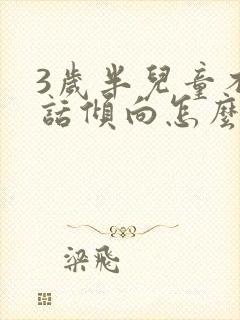 3歲半兒童不
話傾向怎麼
梁飛